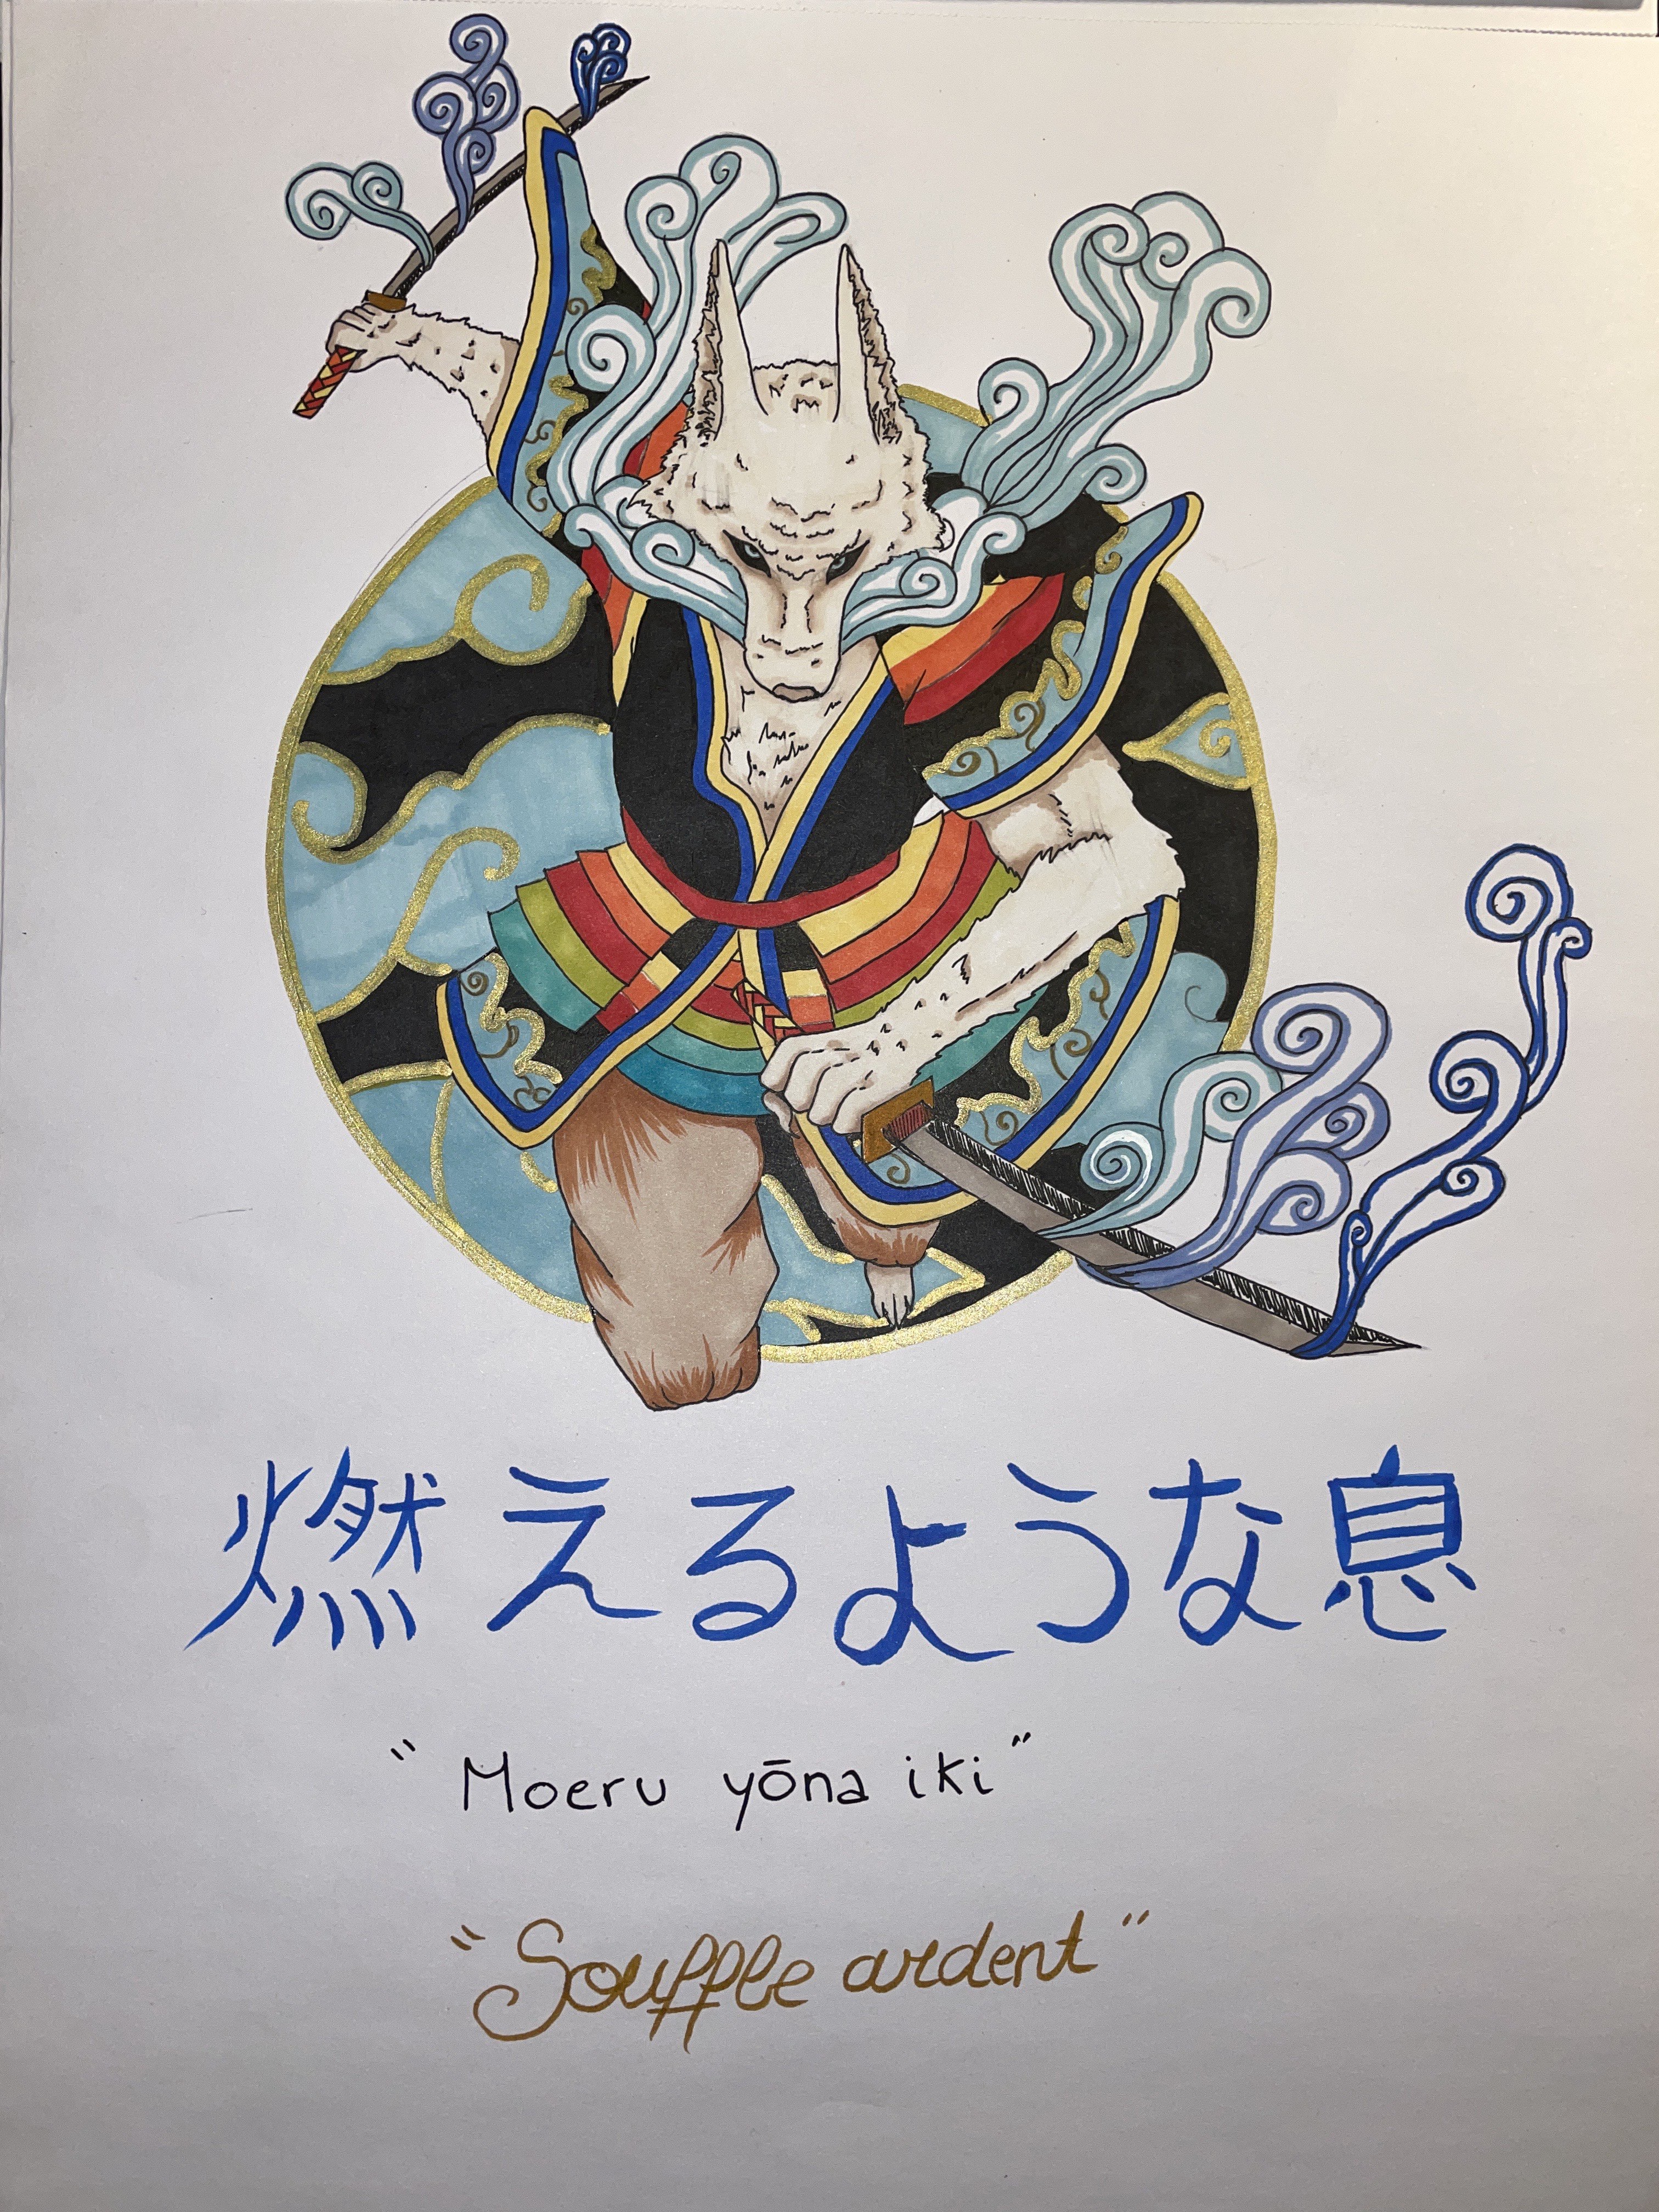 燃えるような息
"Moeru yōna iki"
"Souffle ardent"